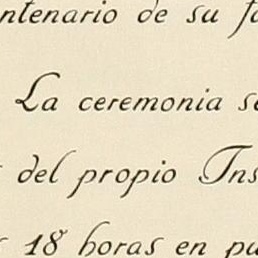 ntenario de su fa
La ceremonia se
del propio Ins
18 horas en pu